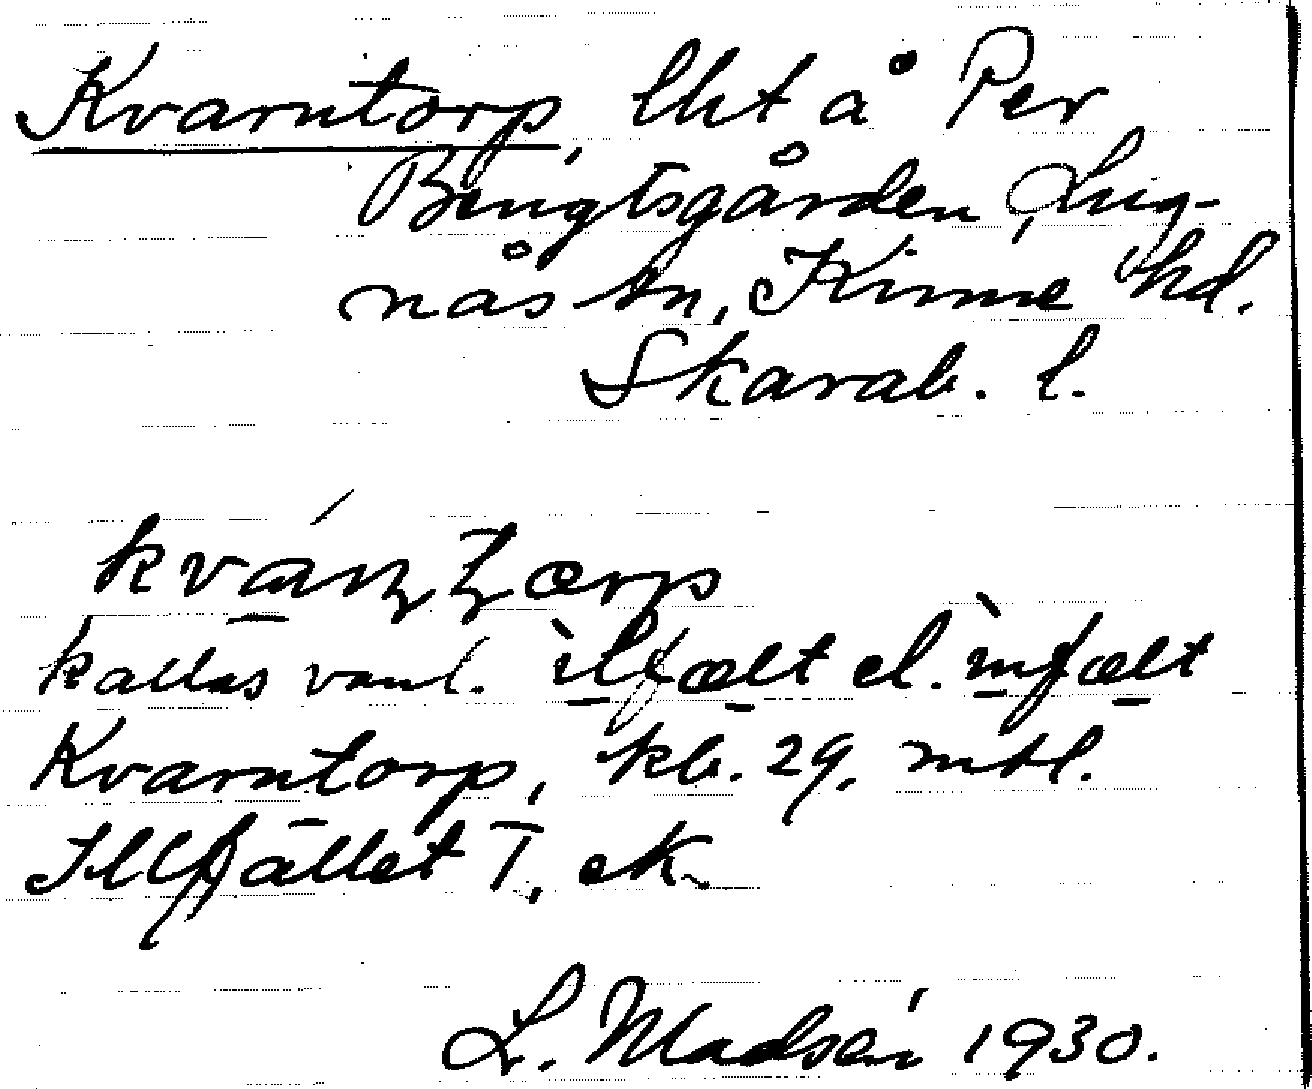 Kvarntorp, lht å Per
Bengtsgården, Lug-
nås sn, Kinne hd.
Skarab. l.
kallas vanl. el.
Kvarntorp, kb. 29. mtl.
Illfället T, ek
L. Madsén 1930.